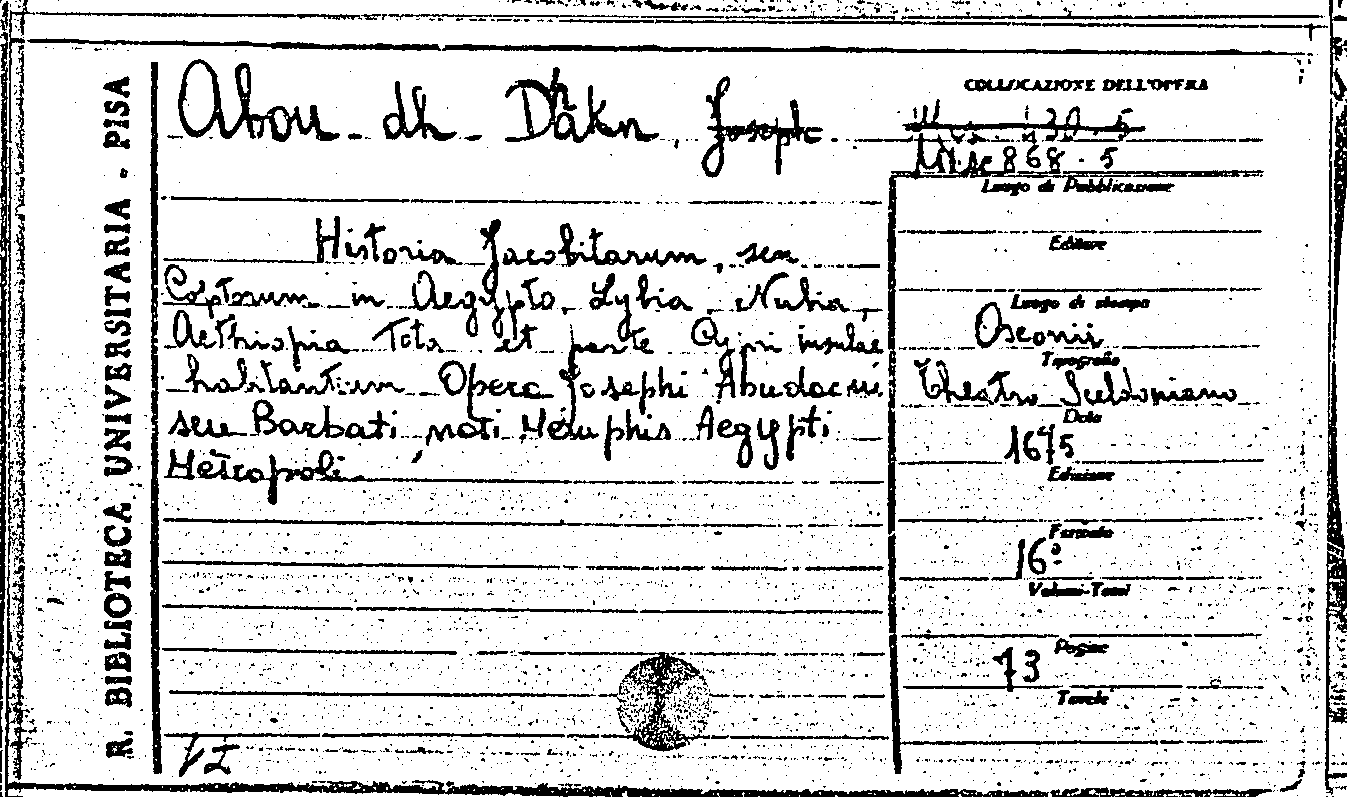 R. BIBLIOTECA UNIVERSITARIA - PISA
Abou-dh-Dhakn, Joseph
Historia Jacobitarum, seu
Coptorum in Aegypto, Lybia, Nubia,
Aethiopia Tota et parte Cypri insulae
habitantium Opera Josephi Abudacni
seu Barbati, nati Memphis Aegypti
Metropoli
COLLOCAZIONE DELL'OPERA
Misc 868.5
Luogo di Pubblicazione
Editore
Luogo di stampa
Oxonii
Tipografia
Theatro Sceldoniano
Data
1675
Edizione
Formato
16º
Volumi-Tomi
Pagine
Tavole